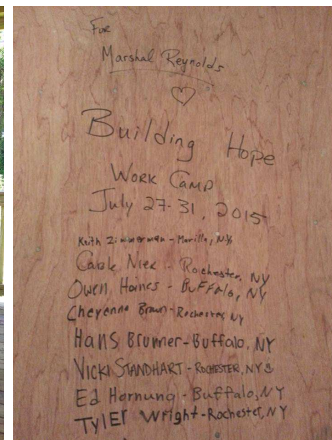 For
Marshal Reynolds
Building Hope
Work Camp
July 27-31, 2015
Keith Zimmerman - Marilla, NY
Carole Nier - Rochester, NY
Owen Haines - Buffalo, NY
Cheyenne Braun - Rochester, NY
Hans Brunner - Buffalo, NY
Vicki STANDHART - ROCHESTER, NY
Ed Hornung - Buffalo, NY
TYLER Wright - Rochester, NY